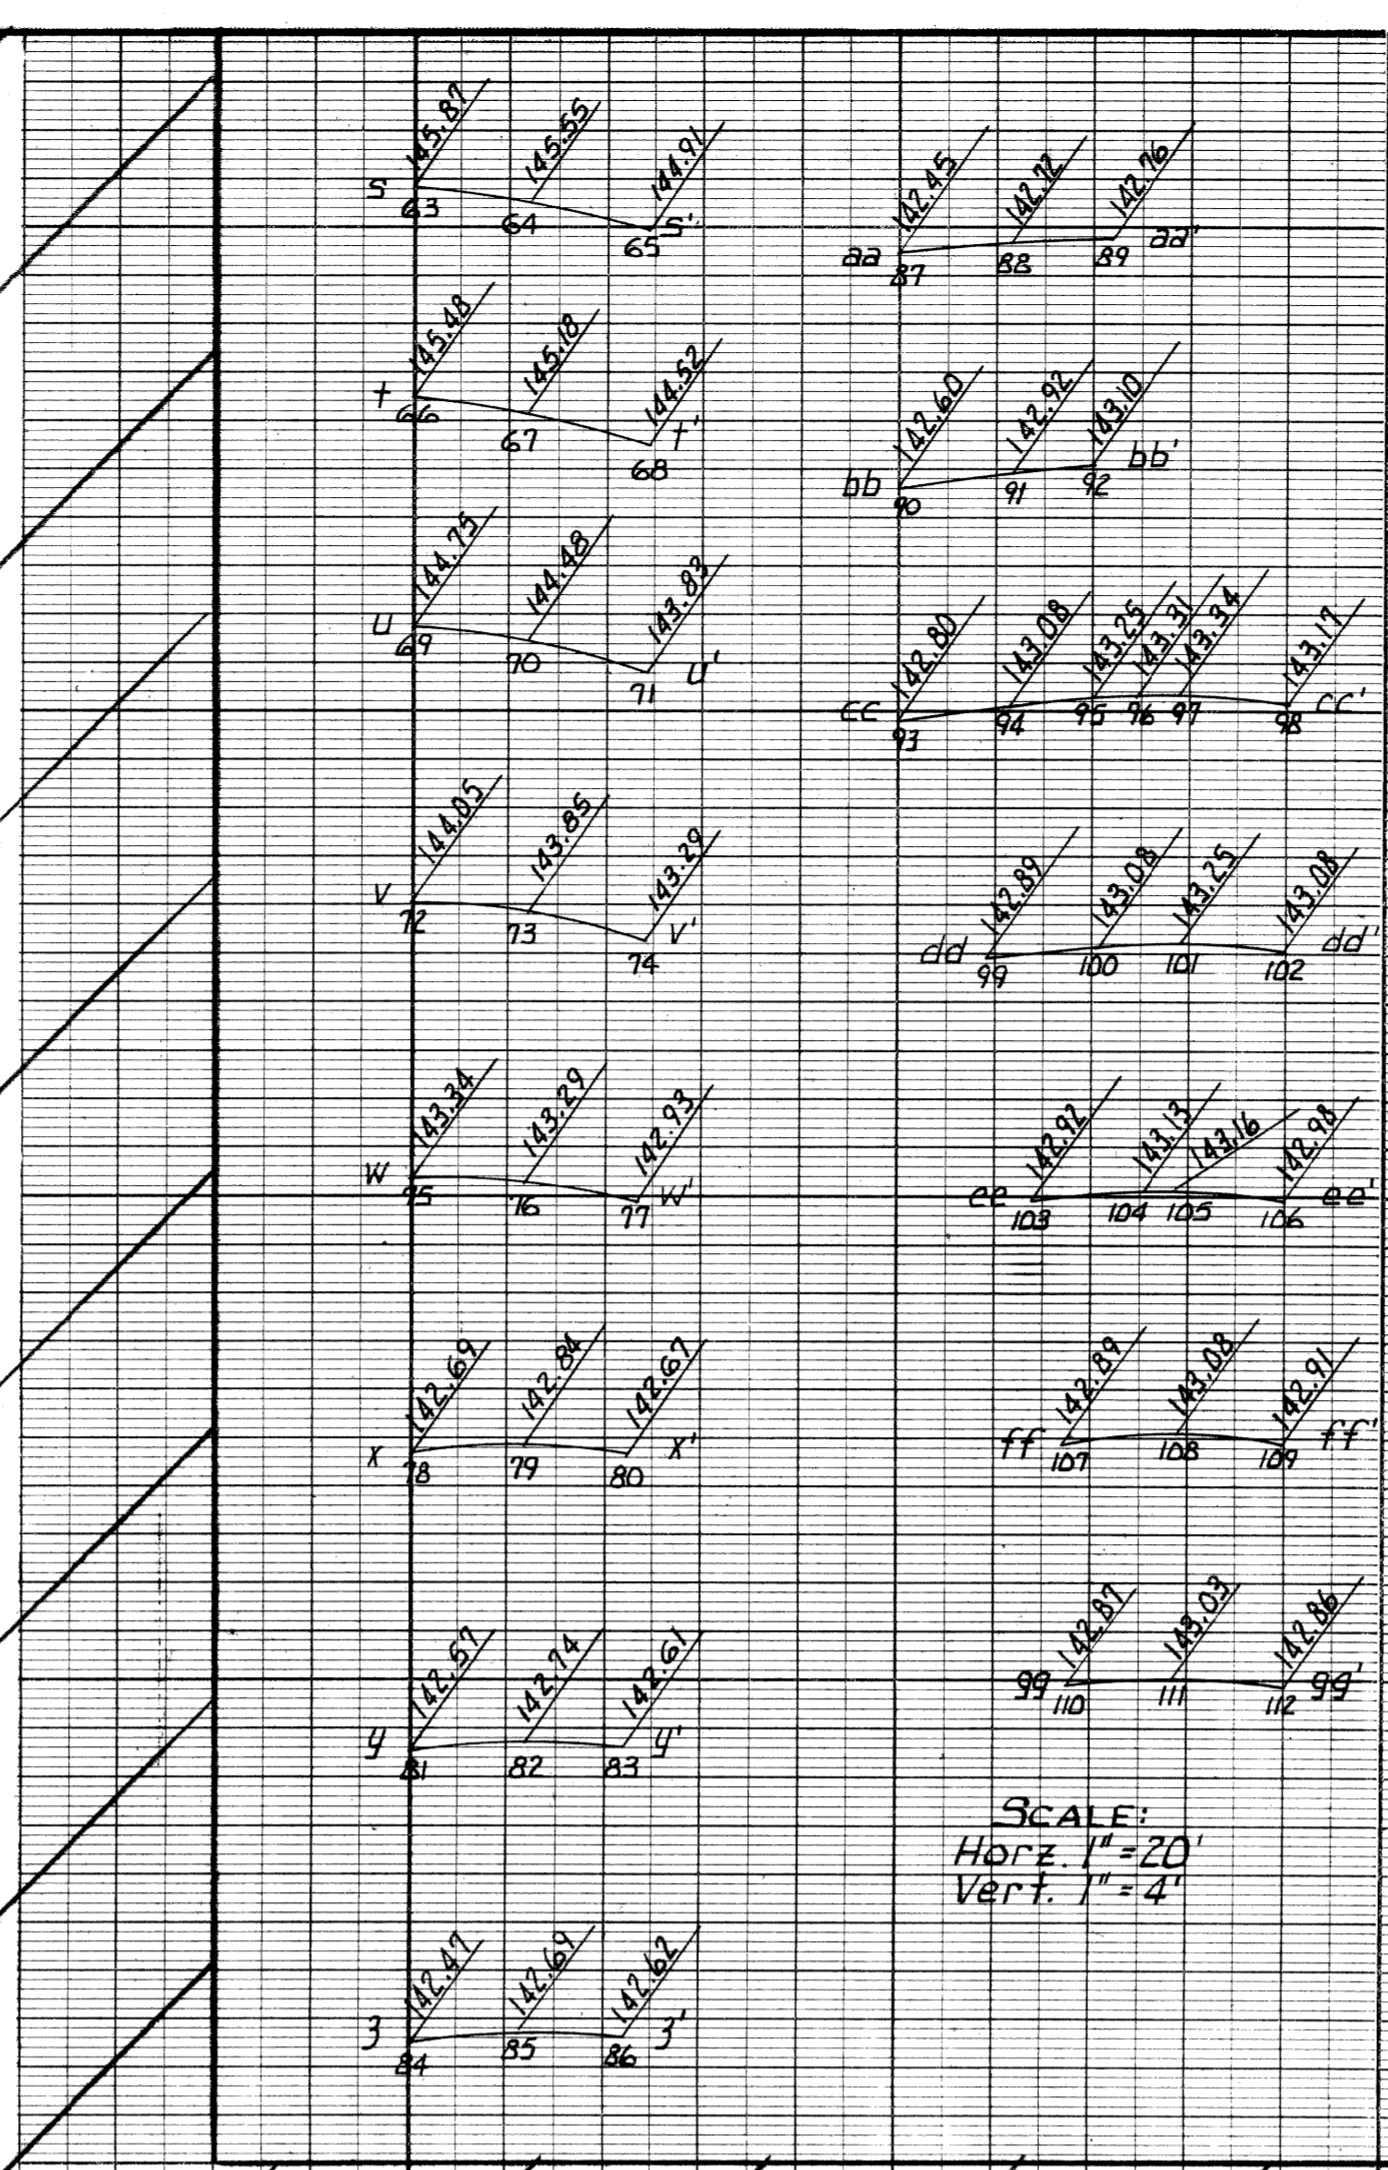 145.87 145.55 144.91
s 63 64 65 s'
145.48 145.18 144.52
t 66 67 68 t'
144.75 144.48 143.83
u 69 70 71 u'
144.05 143.85 143.29
v 72 73 74 v'
143.34 143.29 142.93
w 75 76 77 w'
142.69 142.84 142.67
x 78 79 80 x'
142.57 142.74 142.61
y 81 82 83 y'
142.47 142.69 142.62
z 84 85 86 z'
142.45 142.72 142.76
aa 87 88 89 aa'
142.60 142.92 143.10
bb 90 91 92 bb'
142.80 143.08 143.25 143.31 143.34 143.17
cc 93 94 95 96 97 98 cc'
142.89 143.08 143.25 143.08
dd 99 100 101 102 dd'
142.92 143.13 143.16 142.98
ee 103 104 105 106 ee'
142.89 143.08 142.91
ff 107 108 109 ff'
142.87 143.03 142.86
gg 110 111 112 gg'
SCALE:
Horz. 1" = 20'
Vert. 1" = 4'